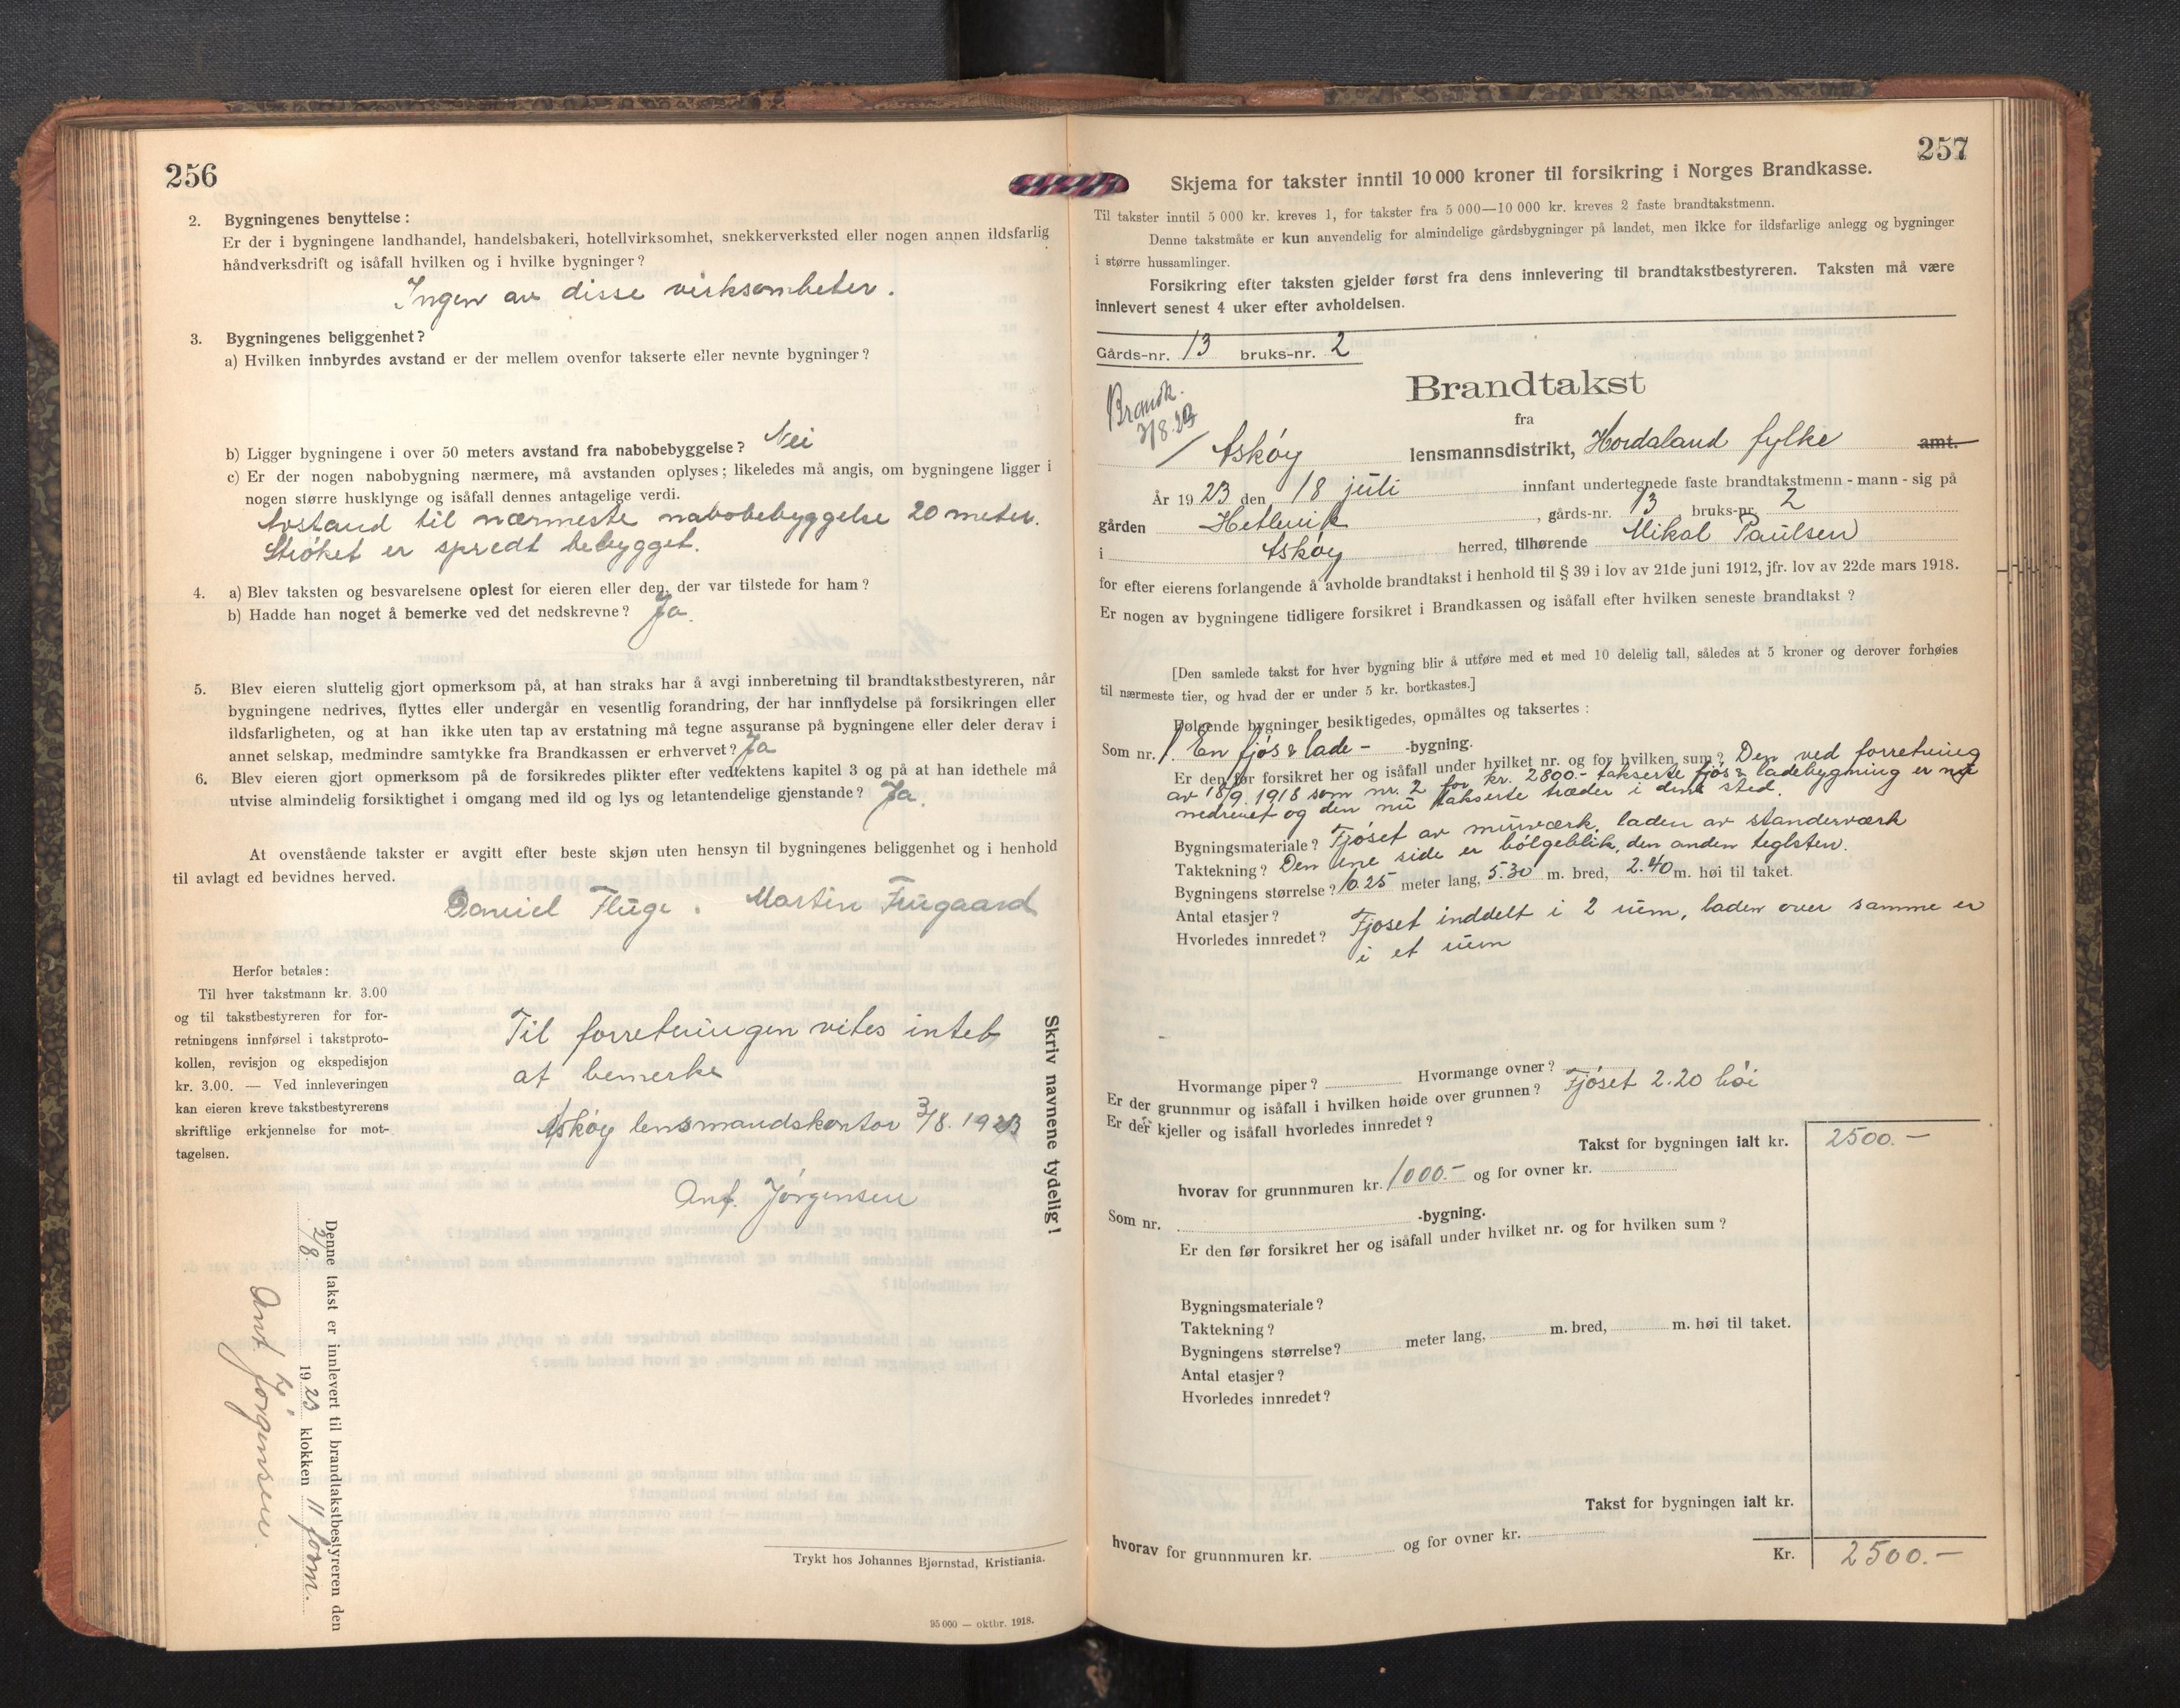 256
2. Bygningenes benyttelse:
Er der i bygningene landhandel, handelsbakeri, hotellvirksomhet, snekkerverksted eller nogen annen ildsfarlig
håndverksdrift og isåfall hvilken og i hvilke bygninger?
Ingen av disse virksomheter.
3. Bygningenes beliggenhet?
a) Hvilken innbyrdes avstand er der mellem ovenfor takserte eller nevnte bygninger?
b) Ligger bygningene i over 50 meters avstand fra nabobebyggelse? Nei
c) Er der nogen nabobygning nærmere, må avstanden oplyses; likeledes må angis, om bygningene ligger i
nogen større husklynge og isåfall dennes antagelige verdi.
Avstand til nærmeste nabobebyggelse 20 meter.
Strøket er spredt bebygget.
4. a) Blev taksten og besvarelsene oplest for eieren eller den, der var tilstede for ham?
b) Hadde han noget å bemerke ved det nedskrevne? Ja.
5. Blev eieren sluttelig gjort opmerksom på, at han straks har å avgi innberetning til brandtakstbestyreren, når
bygningene nedrives, flyttes eller undergår en vesentlig forandring, der har innflydelse på forsikringen eller
ildsfarligheten, og at han ikke uten tap av erstatning må tegne assuranse på bygningene eller deler derav i
annet selskap, medmindre samtykke fra Brandkassen er erhvervet? Ja
6. Blev eieren gjort opmerksom på de forsikredes plikter efter vedtektens kapitel 3 og på at han idethele må
utvise almindelig forsiktighet i omgang med ild og lys og letantendelige gjenstande? Ja.
At ovenstående takster er avgitt efter beste skjøn uten hensyn til bygningenes beliggenhet og i henhold
til avlagt ed bevidnes herved.
Daniel Fluge. Martin Frugaard
Herfor betales:
Til hver takstmann kr. 3.00
og til takstbestyreren for for-
retningens innførsel i takstproto-
kollen, revisjon og ekspedisjon
kr. 3.00. — Ved innleveringen
kan eieren kreve takstbestyrerens
skriftlige erkjennelse for mot-
tagelsen.
Til forretningen vites intet
at bemerke
Askøy lensmandskontor 3/8. 1923
Ant. Jørgensen
Skriv navnene tydelig!
Denne takst er innlevert til brandtakstbestyreren den
2/8. 1923 klokken 11 form.
Ant. Jørgensen.
Trykt hos Johannes Bjørnstad, Kristiania.
95 000 — oktbr. 1918.
257
Skjema for takster inntil 10 000 kroner til forsikring i Norges Brandkasse.
Til takster inntil 5 000 kr. kreves 1, for takster fra 5 000—10 000 kr. kreves 2 faste brandtakstmenn.
Denne takstmåte er kun anvendelig for almindelige gårdsbygninger på landet, men ikke for ildsfarlige anlegg og bygninger
i større hussamlinger.
Forsikring efter taksten gjelder først fra dens innlevering til brandtakstbestyreren. Taksten må være
innlevert senest 4 uker efter avholdelsen.
Gårds-nr. 13 bruks-nr. 2
Brandtakst
Brandk.
3/8.23
fra
Askøy lensmannsdistrikt, Hordaland fylke amt.
År 1923 den 18 juli innfant undertegnede faste brandtakstmenn - mann - sig på
gården Hetlevik, gårds-nr. 13, bruks-nr. 2
i Askøy herred, tilhørende Mikal Paulsen
for efter eierens forlangende å avholde brandtakst i henhold til § 39 i lov av 21de juni 1912, jfr. lov av 22de mars 1918.
Er nogen av bygningene tidligere forsikret i Brandkassen og isåfall efter hvilken seneste brandtakst?
[Den samlede takst for hver bygning blir å utføre med et med 10 delelig tall, således at 5 kroner og derover forhøies
til nærmeste tier, og hvad der er under 5 kr. bortkastes.]
Følgende bygninger besiktigedes, opmåltes og taksertes:
Som nr. 1. En fjøs & lade- -bygning.
Er den før forsikret her og isåfall under hvilket nr. og for hvilken sum? Den ved forretning
av 18/9. 1918 som nr. 2 for kr. 2800.- takserte fjøs & ladebygning er nu
nedrevet og den nu takserte træder i dens sted.
Bygningsmateriale? Fjøset av murværk, laden av standerværk
Taktekning? Den ene side er bølgeblik, den anden teglsten.
Bygningens størrelse? 6.25 meter lang, 5.30 m. bred, 2.40 m. høi til taket.
Antal etasjer?
Hvorledes innredet? Fjøset inddelt i 2 rum, laden over samme er
i et rum
Hvormange piper? Hvormange ovner?
Er der grunnmur og isåfall i hvilken høide over grunnen? Fjøset 2.20 høi
Er der kjeller og isåfall hvorledes innredet?
Takst for bygningen ialt kr. 2500.—
hvorav for grunnmuren kr. 1000.- og for ovner kr.
Som nr. -bygning.
Er den før forsikret her og isåfall under hvilket nr. og for hvilken sum?
Bygningsmateriale?
Taktekning?
Bygningens størrelse? meter lang, m. bred, m. høi til taket.
Antal etasjer?
Hvorledes innredet?
Takst for bygningen ialt kr.
hvorav for grunnmuren kr. og for ovner kr.
Kr. 2500.—